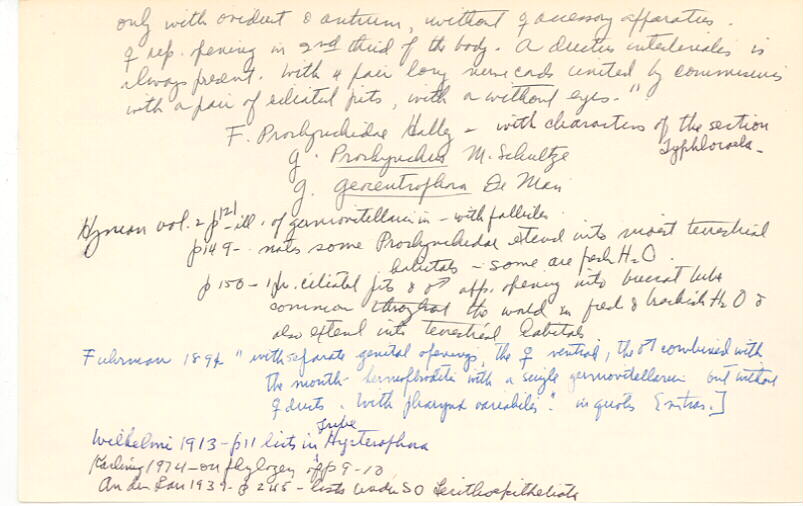 only with oviduct & antrum, without ♀ accessory apparatus.
♀ rep. opening in 2nd third of the body. A ductus intestinalis is
always present. With 4 pair long nerve cords united by commissures
with a pair of ciliated pits, with or without eyes."
F. Prorhynchidae Hallez - with characters of the section
Typhlocoela -
g. Prorhynchus M. Schultze
g. Geocentrophora De Man
Hyman vol. 2 p 121 - ill. of germovitellarium - with follicles
p 149 - notes some Prorhynchidae extend into moist terrestrial
habitats - some are fresh H2O.
p 150 - 1 pr. ciliated pits & ♂ app. opening into buccal tube
common throughout the world in fresh & brackish H2O &
also extend into terrestrial habitats
Fuhrman 1894 " with separate genital openings, the ♀ ventral, the ♂ combined with
the mouth - hermaphrodite with a single germovitellarium but without
♀ ducts. With pharynx variabilis". in quotes
Wilhelmi 1913 - p 11 lists in Tribe Hysterophora
Karling 1974 - on phylogeny pp 9-10
An der Lan 1939 - p 245 - lists under SO Lecithoepitheliata